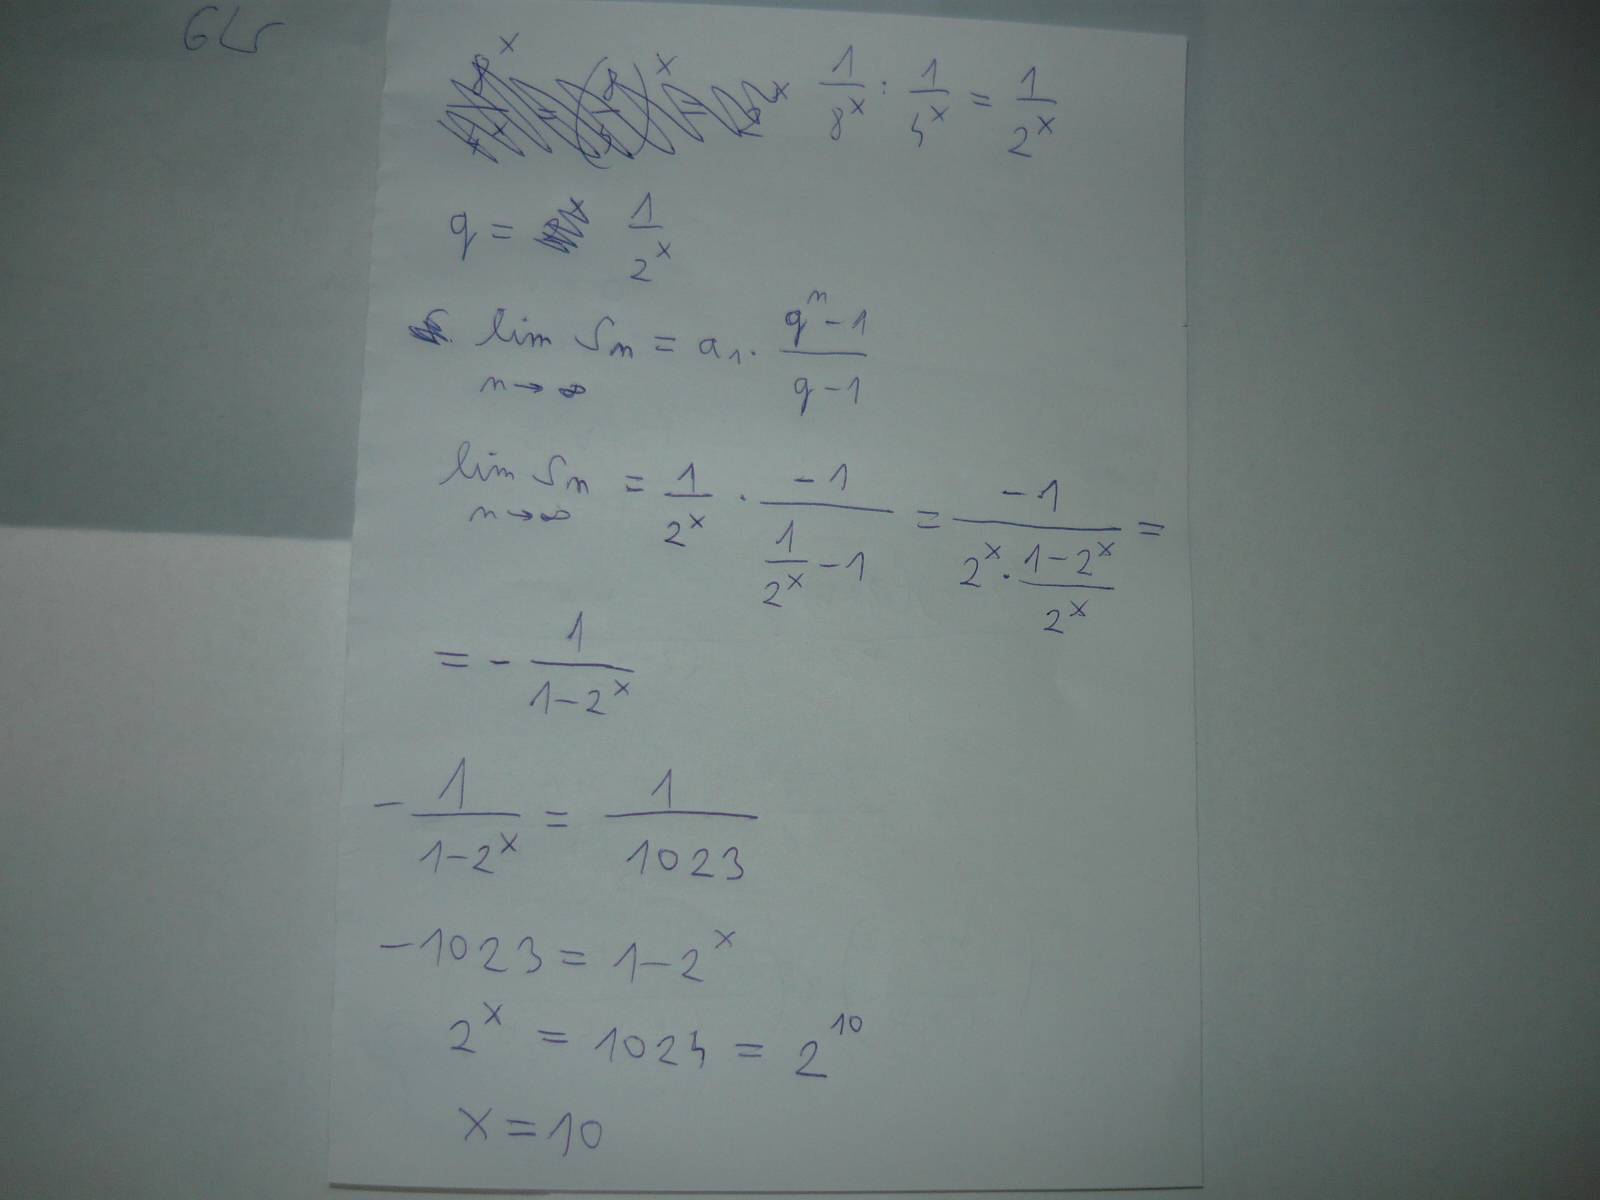 1/8^x : 1/4^x = 1/2^x
q = 1/2^x
lim Sn = a₁ · (q^n - 1)/(q - 1)
n→∞
lim Sn = 1/2^x · -1/(1/2^x - 1) = -1/(2^x · (1-2^x)/2^x) =
n→∞
= - 1/(1-2^x)
- 1/(1-2^x) = 1/1023
-1023 = 1-2^x
2^x = 1024 = 2^10
x = 10